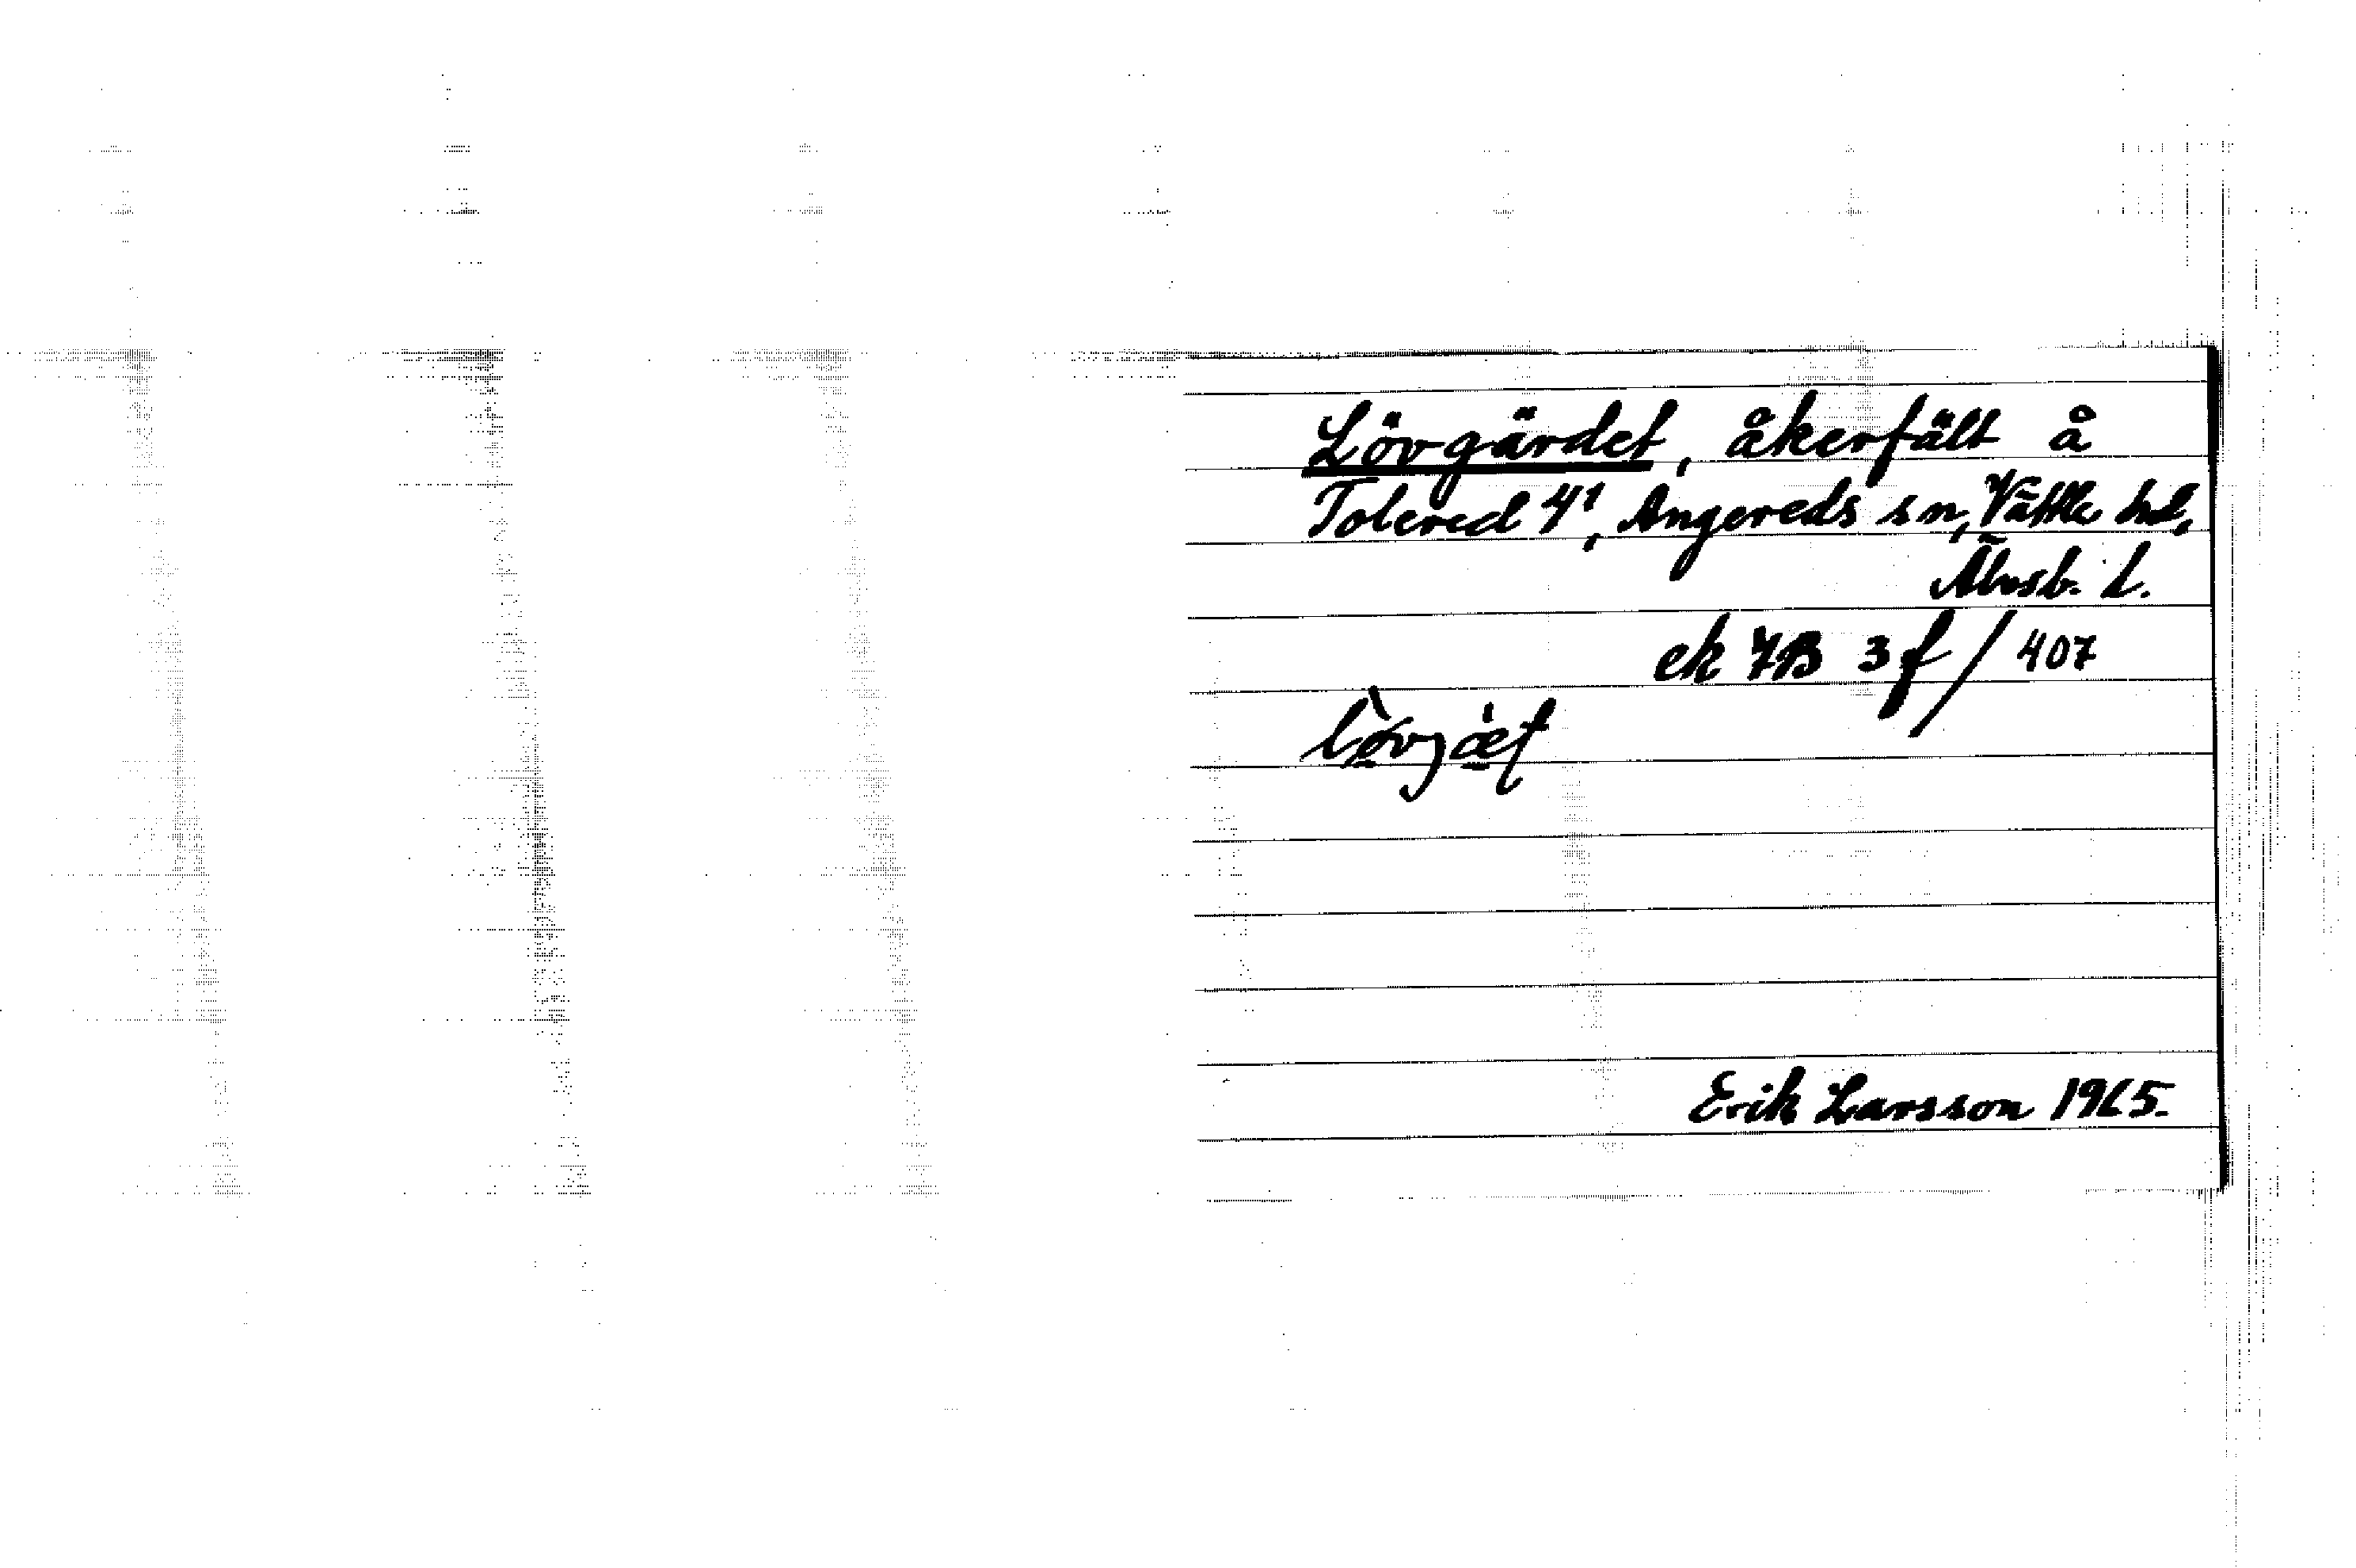 Lövgärdet, åkerfält å
Tolered 4¹, Angereds sn, Vättle hd,
Älvsb. l.
ek 7B 3f/407
Erik Larsson 1965.